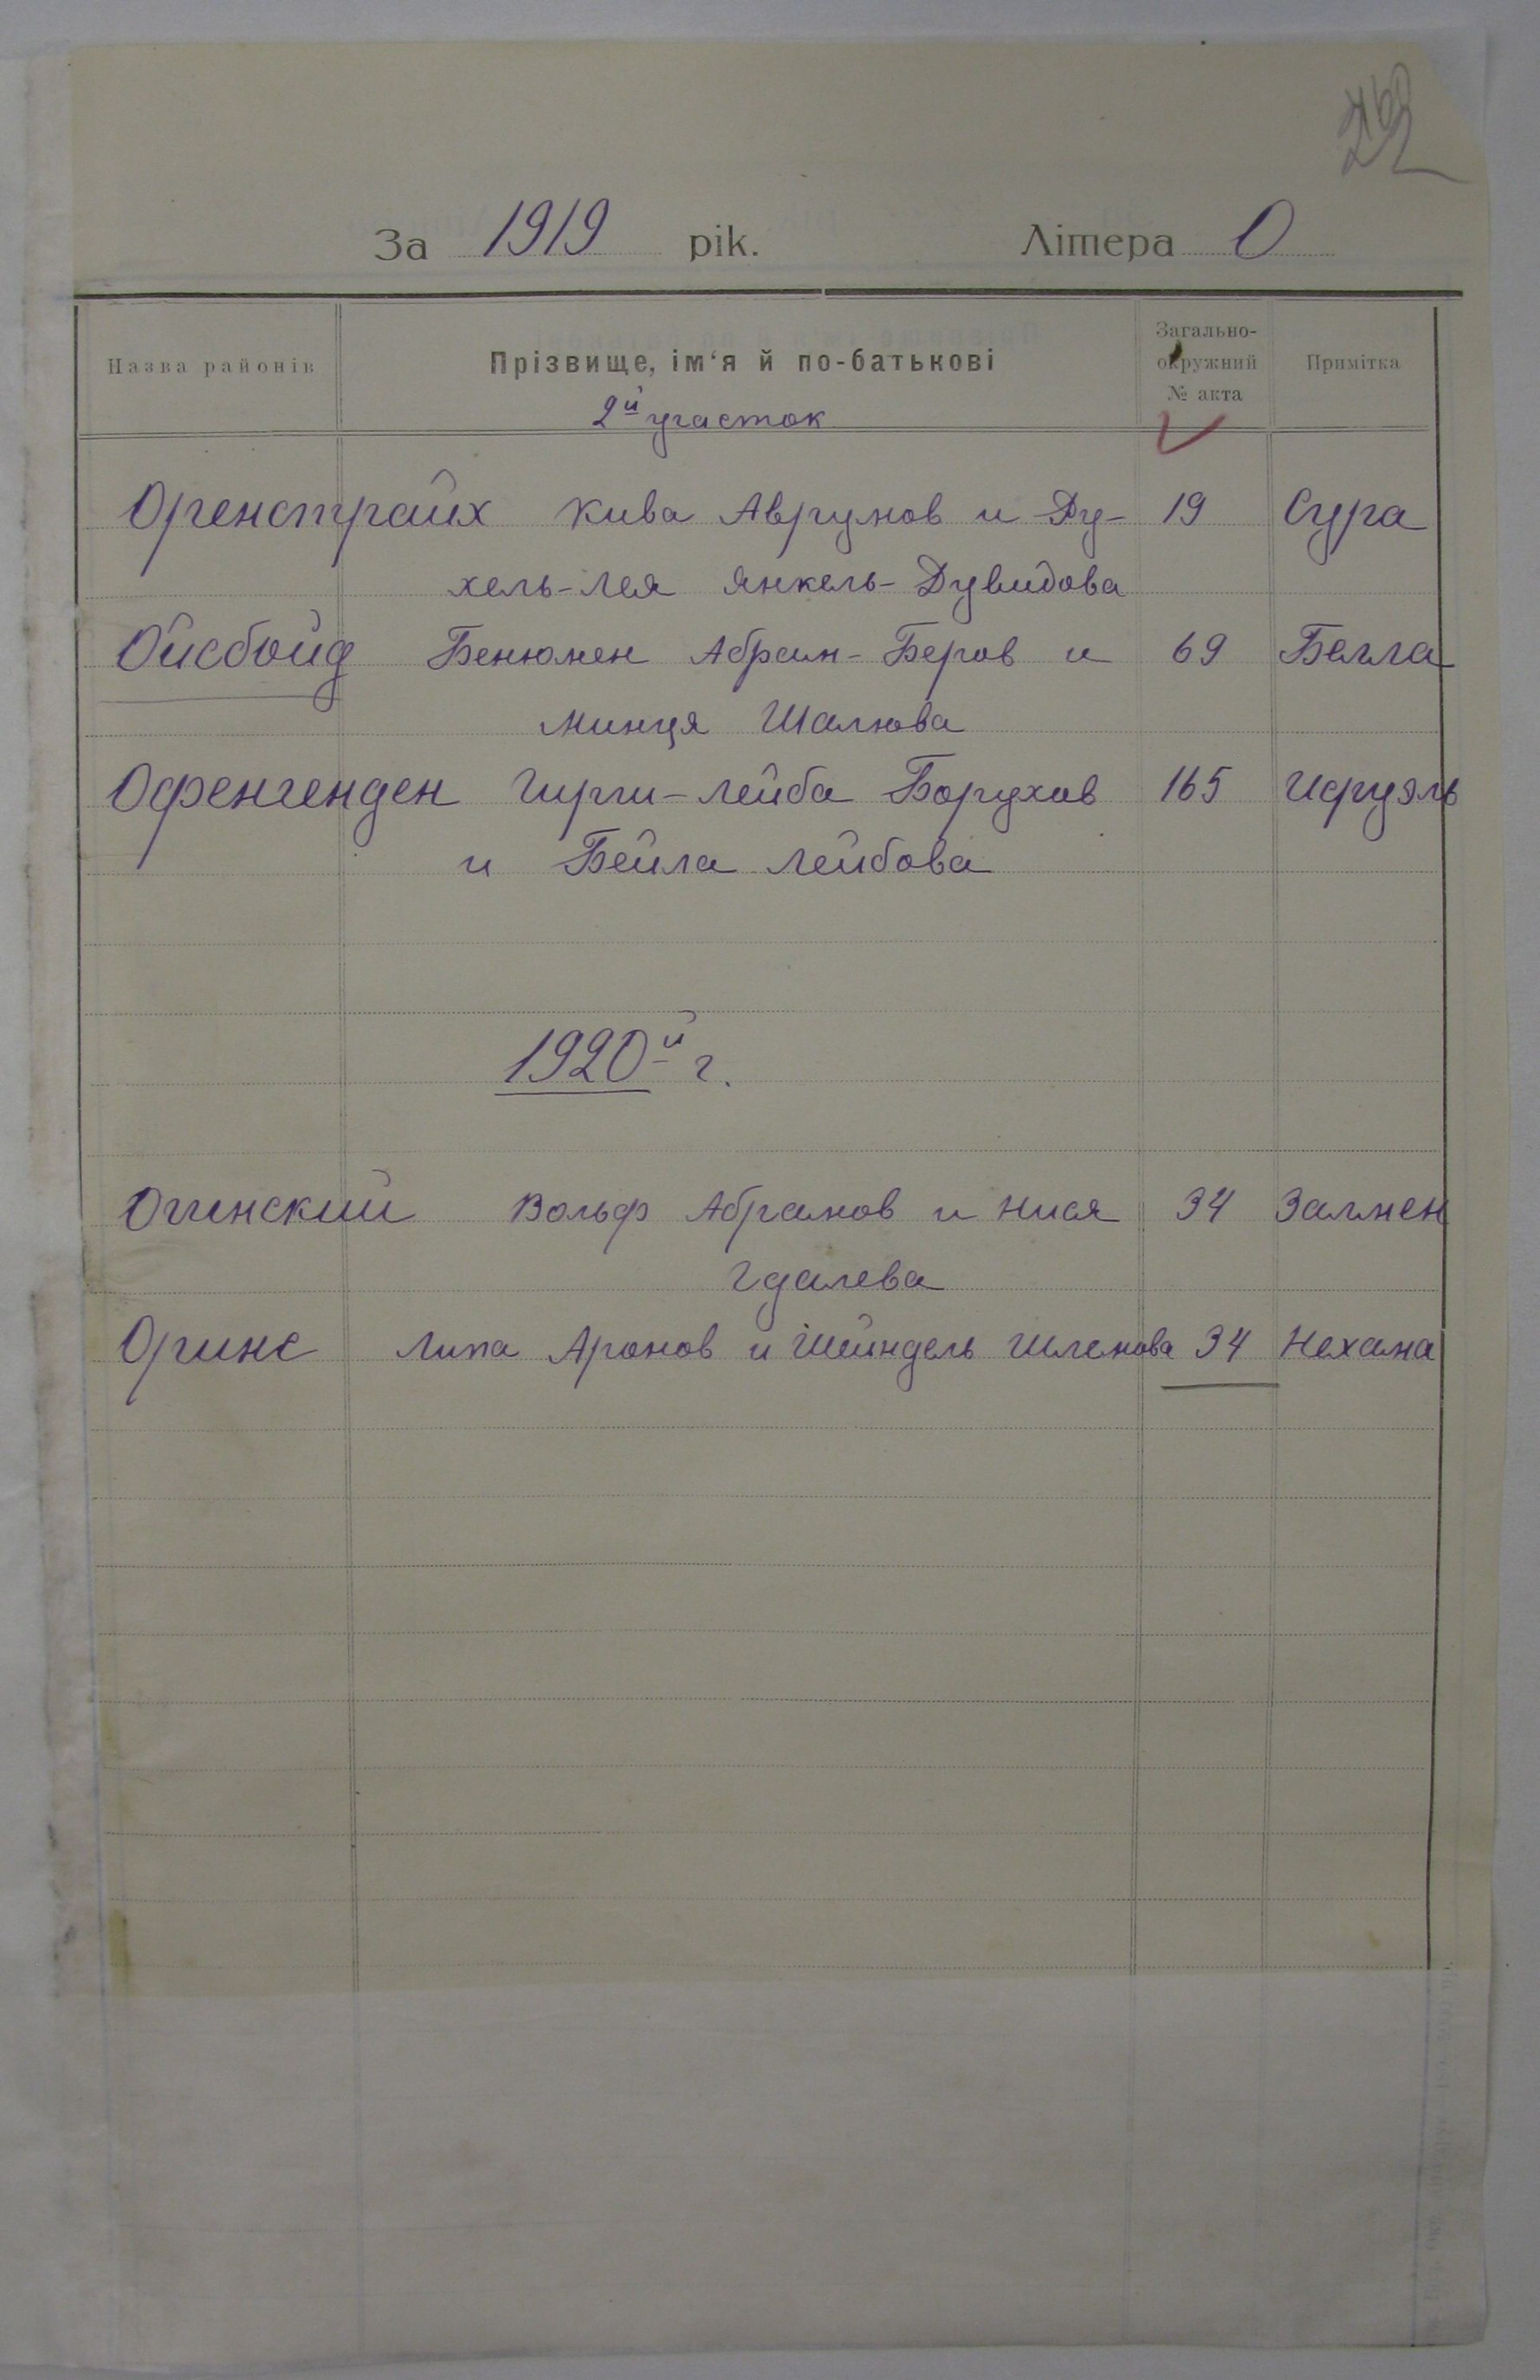 За 1919 рік. Літера О
Назва районів
Прізвище, ім‘я й по-батькові
Загально-окружний № акта
Примітка
2й участок
Оренстрайх Кива Аврумов и Ру- 19 Сура
хель-Лея Янкель-Дувидова
Ойсбойд Бенюмен Абрам-Беров и 69 Белла
Минця Шалюва
Офенгенден Гирш-Лейба Борухов 165 Исруэль
и Бейла Лейбова
1920й г.
Огинский Вольф Абрамов и Нися 34 Залмен
Гдалева
Оринс Липа Аронов и Шейндель Шлемова 34 Нехама